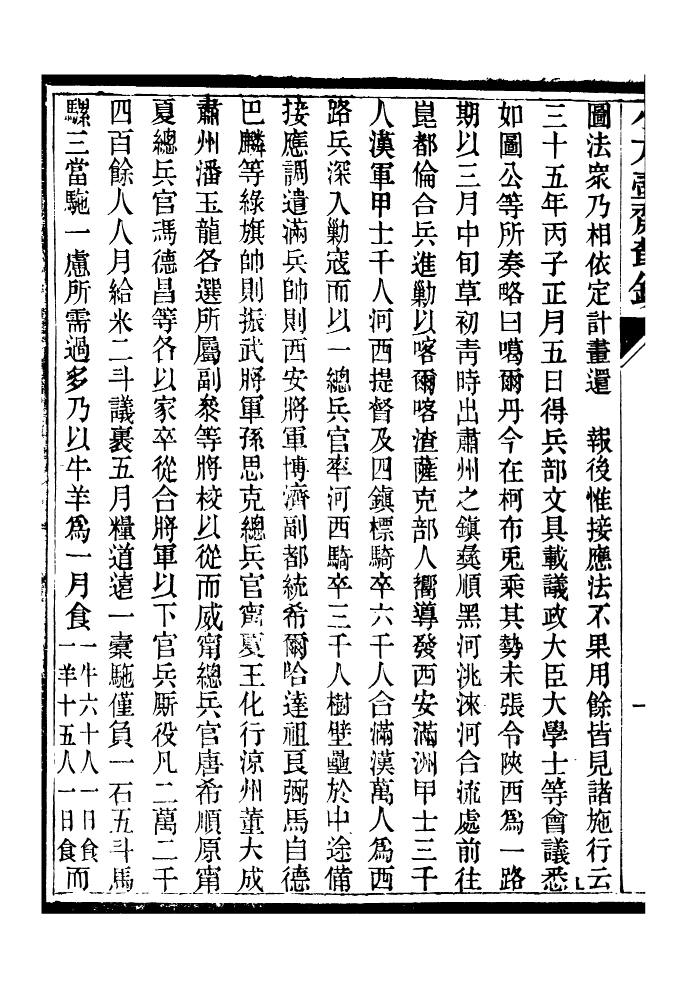 圖法衆乃相依定計畫還　報後惟接應法不果用餘皆見諸施行云
三十五年丙子正月五日得兵部文具載議政大臣大學士等會議悉
如圖公等所奏略曰噶爾丹今在柯布兎乘其勢未張令陝西爲一路
期以三月中旬草初靑時出肅州之鎭彝順黑河洮淶河合流處前往
崑都倫合兵進勦以喀爾喀渣薩克部人嚮導發西安滿洲甲士三千
人漢軍甲士千人河西提督及四鎭標騎卒六千人合滿漢萬人爲西
路兵深入勦寇而以一總兵官率河西騎卒三千人樹壁壘於中途備
接應調遣滿兵帥則西安將軍博濟副都統希爾哈達祖良弼馬自德
巴麟等綠旗帥則振武將軍孫思克總兵官甯夏王化行涼州董大成
肅州潘玉龍各選所屬副叅等將校以從而威甯總兵官唐希順原甯
夏總兵官馮德昌等各以家卒從合將軍以下官兵厮役凡二萬二千
四百餘人人八月給米二斗議裹五月糧道遠一槖駞僅負一石五斗馬
騾三當駞一慮所需過多乃以牛羊爲一月食一牛六十人一日食一羊十五人一日食而